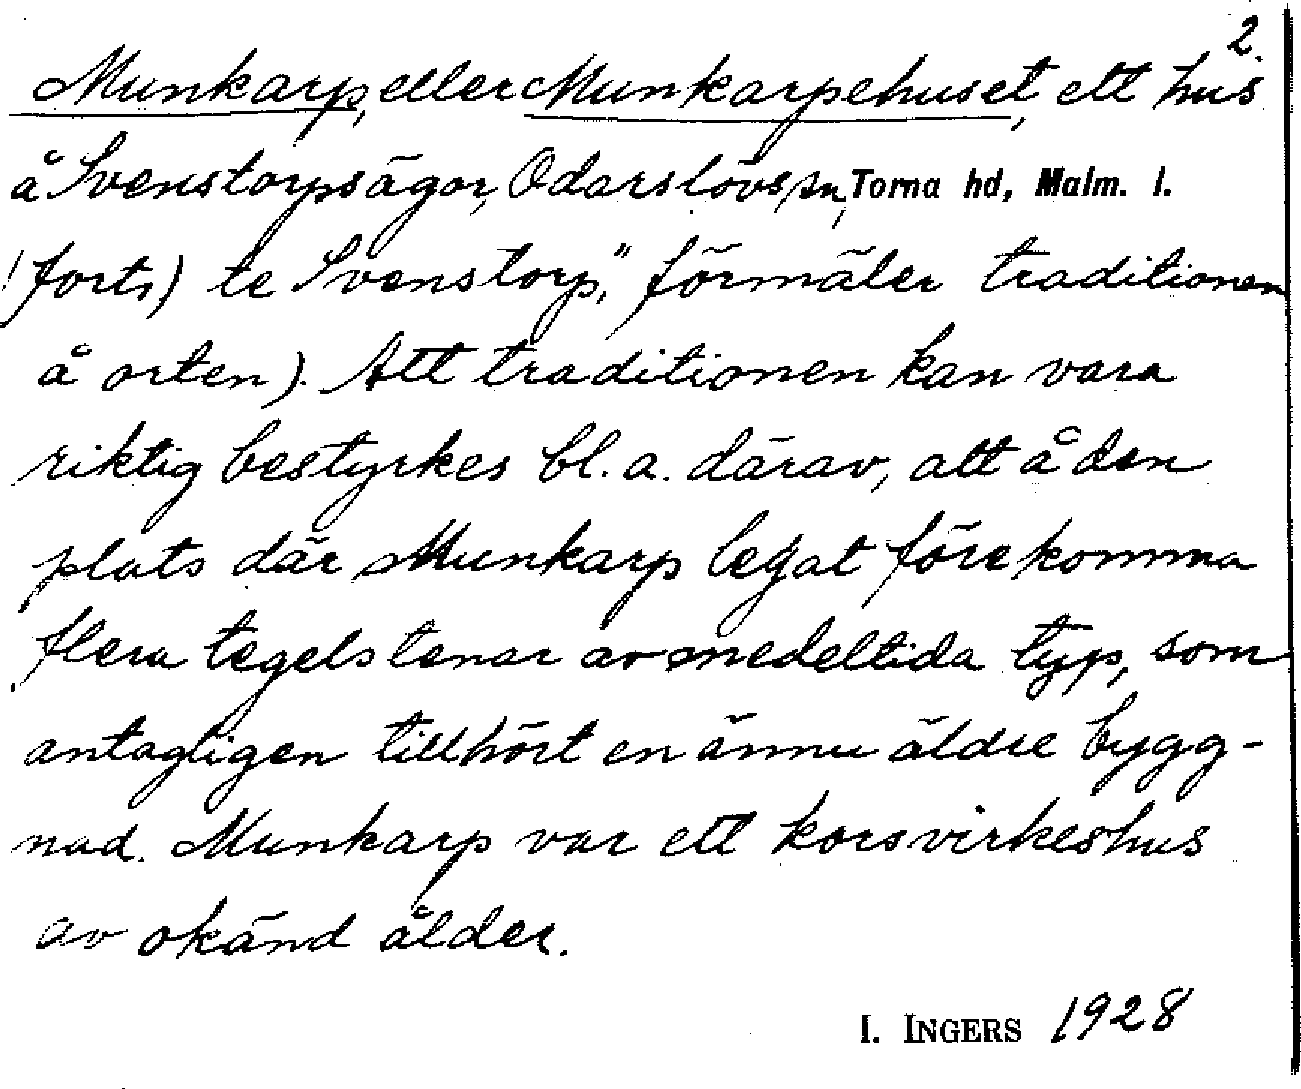 2.
Munkarp, eller Munkarpehuset, ett hus
å Svenstorps ägor, Odarslövs sn, Torna hd, Malm. l.
(forts.) te Svenstorp", förmäler traditionen
å orten). Att traditionen kan vara
riktig bestyrkes bl. a. därav, att å den
plats där Munkarp legat förekomma
flera tegelstenar av medeltida typ, som
antagligen tillhört en ännu äldre bygg-
nad. Munkarp var ett korsvirkeshus
av okänd ålder.
I. INGERS 1928